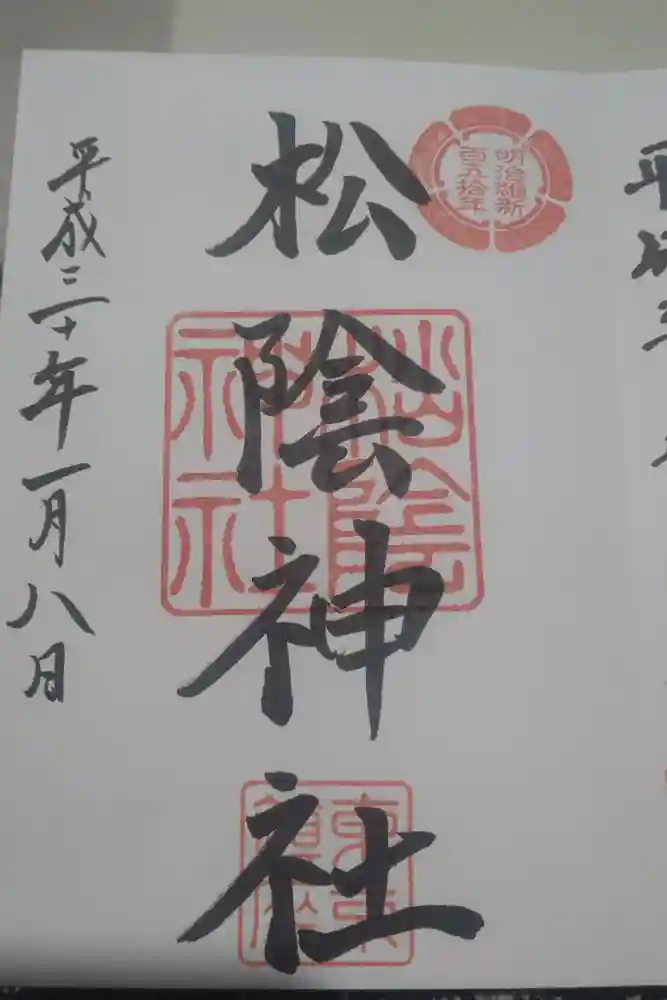 平成三
明治維新
百五拾年
松陰神社
松陰
神社
東京
鎮座
平成三十年一月八日